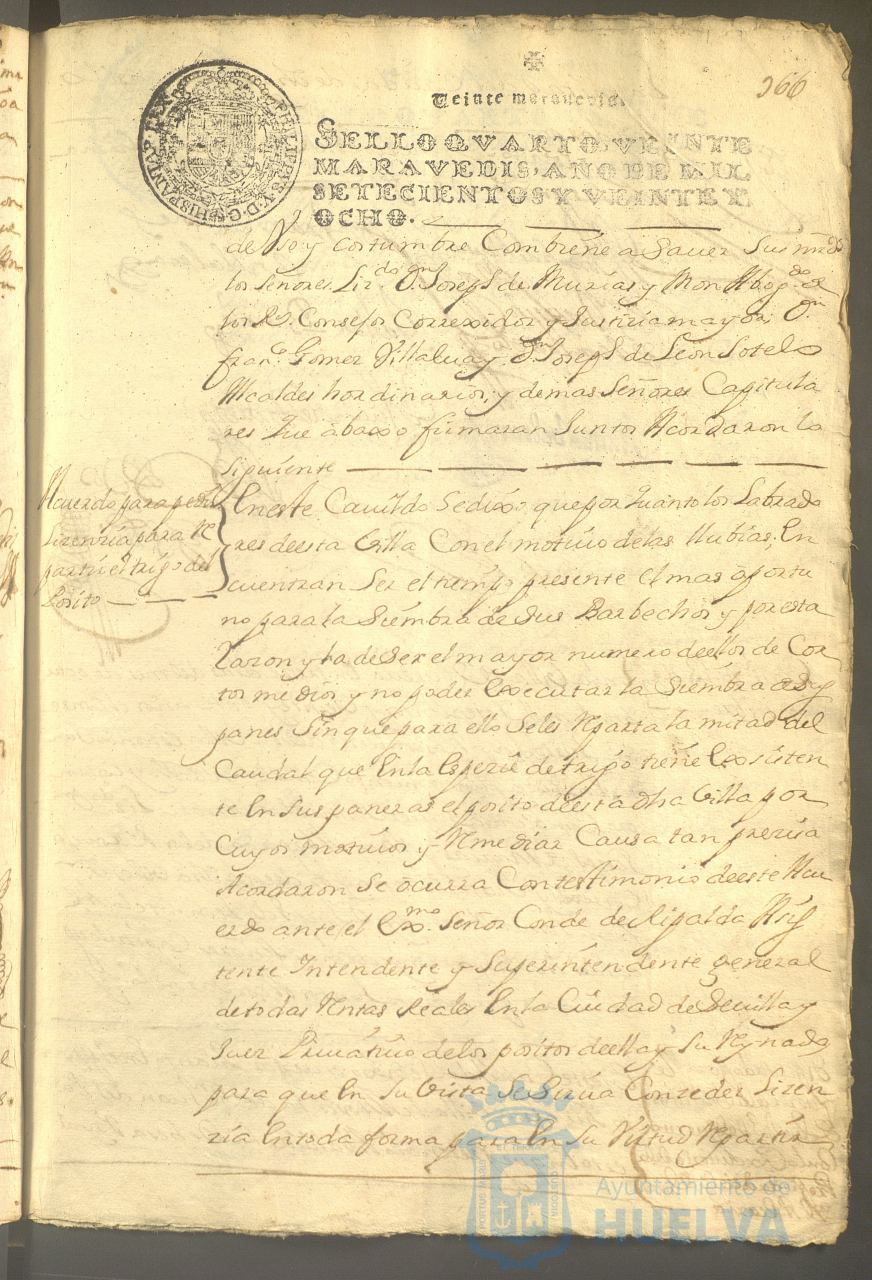 366
Veinte maravedis.
SELLO QVARTO, VEINTE
MARAVEDIS, AÑO DE MIL
SETECIENTOS Y VEINTE Y
OCHO.
PHILIPPVS V D G HISPANIAR REX
de Vso y costumbre Combiene a Sauer Sus mrds
los Señores Lizdo Dn Joseph de Murias y Mon Abogdo de
los Rs. Consejos Correxidor y Justiciamayor, Dn
franco Gomez Villalua y Dn Joseph de Leon Sotelo
Alcaldes hordinarios, y demas Señores Capitula
res que abaxo firmaran Juntos Acordaron lo
siguiente
Acuerdo para pedir
Lizenzia para Re
partir el trigo del
Posito
En este Cauildo Sedixo, que por quanto los Labrado
res de esta Villa Con el motiuo de las llubias, En
cuentran Ser el tiempo presente El mas oportu
no para la Siembra de Sus Barbechos y por esta
Razon y ha de Ser el mayor numero de ellos de Cor
tos medios y no poder Executar la Siembra de Sus
panes Sin que para ello Se les Reparta la mitad del
Caudal que En la Espezie de trigo tiene Existen
te En Sus paneras el posito de esta dha Villa por
Cuyos motiuos y Remediar Causa tan preziza
Acordaron Se ocurra Con testimonio de este Acu
erdo ante el Exmo. Señor Conde de Ripalda Asis
tente Intendente y Superintendente general
de todas Rentas Reales En la Ciudad de Seuilla y
Juez Priuatiuo de los positos de ella y Su Reynado
para que En Su Vista Se Sirua Conzeder Lizen
zia En toda forma para En Su Virtud Repartir
Ayuntamiento de
HUELVA